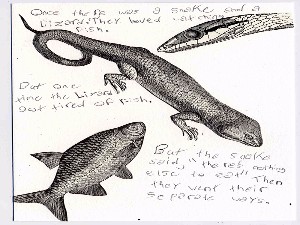 Once there was a snake and a
lizard. They loved eating
fish.
But one
time the lizard
got tired of fish.
But the snake
said, "theres nothing
else to eat!" Then
they went their
seperate ways.